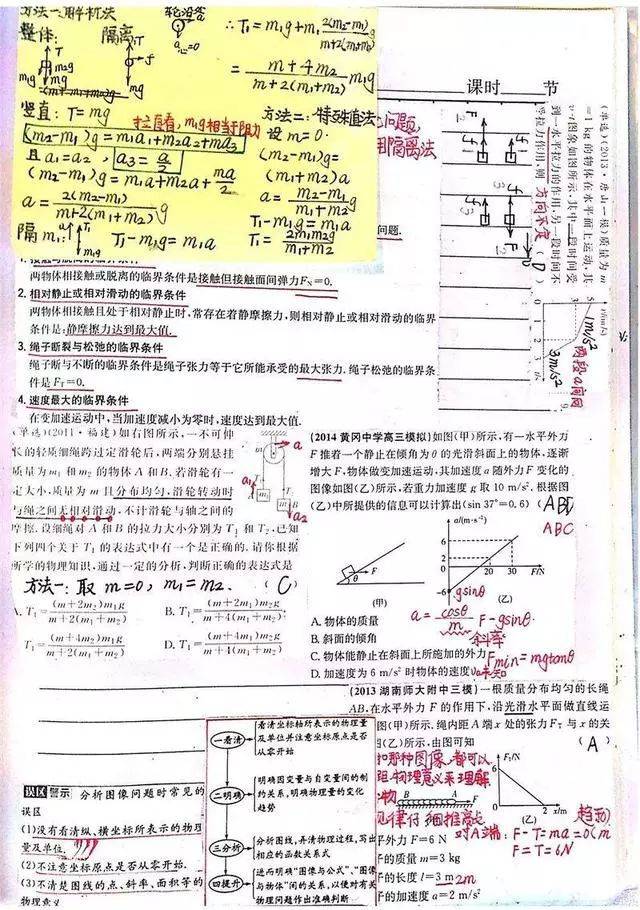 方法一:解析法
整体: 隔离:
轮沿寄
T
m₂g
m₁g
f
a心=0
竖直: T=mg
拉直看,m₁g相当于阻力
(m₂-m₁)g=m₁a₁+m₂a₂+ma₃
且a₁=a₂, a₃=a/2
(m₂-m₁)g=m₁a+m₂a+ma/2
a=2(m₂-m₁)/(m+2(m₁+m₂)) g
隔m₁: T₁-m₁g=m₁a
∴T₁=m₁g+m₁ 2(m₂-m₁)/(m+2(m₁+m₂)) g
=(m+4m₂)/(m+2(m₁+m₂)) m₁g
方法二:特殊值法
设m=0.
(m₂-m₁)g=
(m₁+m₂)a
a=(m₂-m₁)/(m₁+m₂) g
T₁-m₁g=m₁a
T₁=2m₁m₂g/(m₁+m₂)
问题,
用隔离法
问题.
课时 节
(单选)(2013·唐山一模)质量为m
=1 kg的物体在水平面上运动,其
v-t图象如图所示,其中一段时间受
到一水平拉力的作用,另一段时间不
受拉力作用,则
方向不定
(D)
1m/s²
3m/s²
两段a间同
两物体相接触或脱离的临界条件是接触但接触面间弹力F_N=0.
2.相对静止或相对滑动的临界条件
两物体相接触且处于相对静止时,常存在着静摩擦力,则相对静止或相对滑动的临界
条件是:静摩擦力达到最大值.
3.绳子断裂与松弛的临界条件
绳子断与不断的临界条件是绳子张力等于它所能承受的最大张力.绳子松弛的临界条
件是F_T=0.
4.速度最大的临界条件
在变加速运动中,当加速度减小为零时,速度达到最大值.
(单选)(2011·福建)如右图所示,一不可伸
长的轻质细绳跨过定滑轮后,两端分别悬挂
质量为m₁和m₂的物体A和B.若滑轮有一
定大小,质量为m且分布均匀,滑轮转动时
与绳之间无相对滑动,不计滑轮与轴之间的
摩擦.设细绳对A和B的拉力大小分别为T₁和T₂,已知
下列四个关于T₁的表达式中有一个是正确的.请你根据
所学的物理知识,通过一定的分析,判断正确的表达式是
方法一:取m=0,m₁=m₂. (C)
A. T₁=(m+2m₂)m₁g/(m+2(m₁+m₂)) B. T₁=(m+2m₁)m₂g/(m+4(m₁+m₂))
T₁=(m+4m₂)m₁g/(m+2(m₁+m₂)) D. T₁=(m+4m₁)m₂g/(m+4(m₁+m₂))
a
a₁
a₂
(2014 黄冈中学高三模拟)如图(甲)所示,有一水平外力
F推着一个静止在倾角为θ的光滑斜面上的物体,逐渐
增大F,物体做变加速运动,其加速度a随外力F变化的
图像如图(乙)所示,若重力加速度g取10 m/s².根据图
(乙)中所提供的信息可以计算出(sin 37°=0.6) (ABD
ABC
a/(m·s⁻²)
6
20 30 F/N
-6
gsinθ
θ F
(甲) (乙)
a=cosθ/m F-gsinθ.
斜率
A. 物体的质量
B. 斜面的倾角
C. 物体能静止在斜面上所施加的外力 Fmin=mgtanθ
D. 加速度为6 m/s²时物体的速度 v₀未知
(2013 湖南师大附中三模)一根质量分布均匀的长绳
AB,在水平外力F的作用下,沿光滑水平面做直线运
图(甲)所示.绳内距A端x处的张力F_T与x的关
图(乙)所示,由图可知 (A)
那种图像,都可以
物理意义来理解
F_T/N
2 x/m
(乙)
趋动
对A端: F-T=ma=0
F=T=6N
外力F=6 N
的质量m=3 kg
的长度l=3 m 2m
的加速度a=2 m/s²
误区警示 分析图像问题时常见的
误区
(1)没有看清纵、横坐标所表示的物理
量及单位.
(2)不注意坐标原点是否从零开始.
(3)不清楚图线的点、斜率、面积等的
物理意义
一看清
看清坐标轴所表示的物理量
及单位并注意坐标原点是否
从零开始
二明确
明确因变量与自变量间的制
约关系,明确物理量的变化
趋势
三分析
分析图线,弄清物理过程,写出
相应的函数关系式
四提升
进而明确“图像与公式”、“图像
与物体”间的关系,以便对有关
物理问题作出准确判断